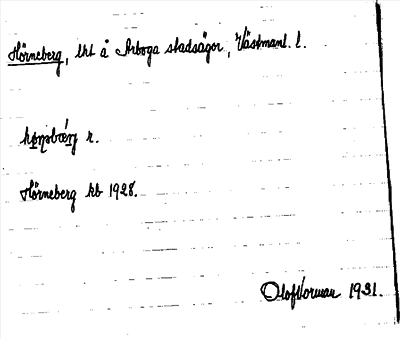 Hörneberg, lht å Arboga stadsägor, Västmanl. l.
r.
Hörneberg kb 1928.
Olof Norman 1931.